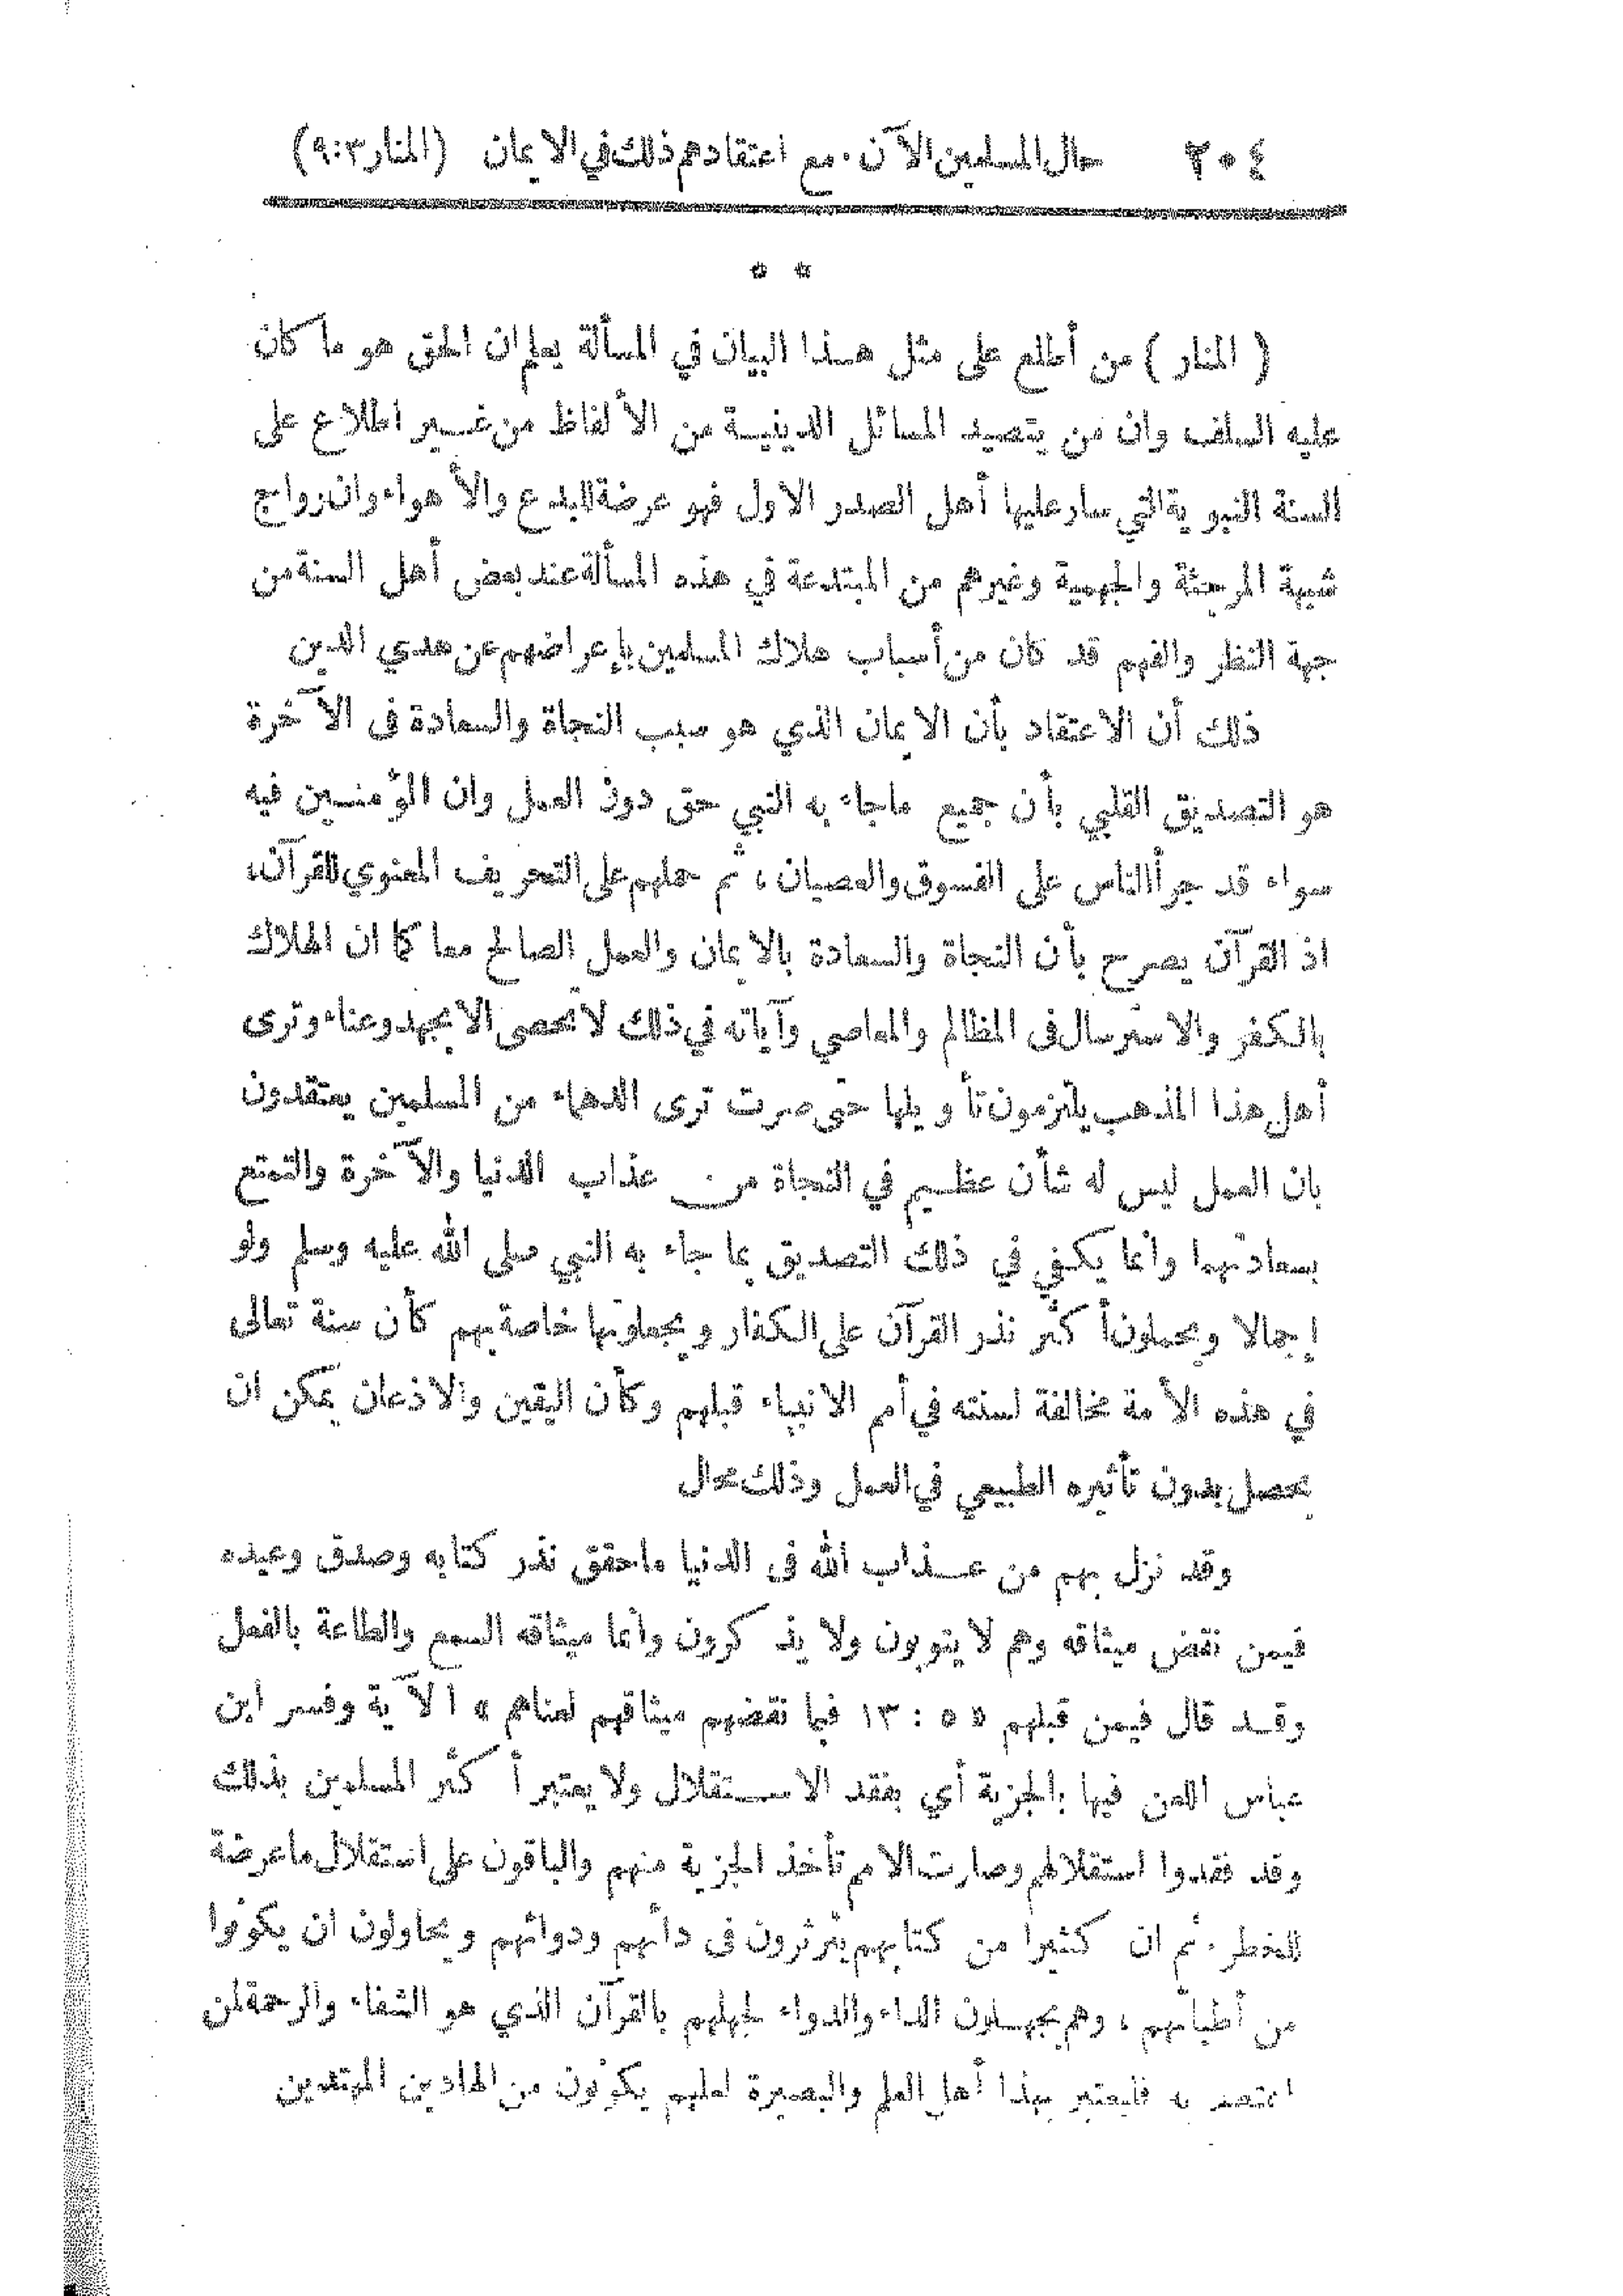 ٢٠٤ حال المسلمين الآن. مع اعتقادهم ذلك في الايمان (المنار ٩:٣)
* *
( المنار ) من أطلع على مثل هذا البيان في المسألة يعلم ان الحق هو ما كان
عليه السلف وان من يتصيد المسائل الدينية من الألفاظ من غير اطلاع على
السنة النبوية التي سار عليها أهل الصدر الاول فهو عرضة للبدع والأهواء وان رواج
شبهة المرجئة والجهمية وغيرهم من المبتدعة في هذه المسألة عند بعض أهل السنة من
جهة النظر والفهم قد كان من أسباب هلاك المسلمين بإعراضهم عن هدي الدين
ذلك أن الاعتقاد بأن الايمان الذي هو سبب النجاة والسعادة في الآخرة
هو التصديق القلبي بأن جميع ماجاء به النبي حق دون العمل وان المؤمنين فيه
سواء قد جرأ الناس على الفسوق والعصيان ، ثم حملهم على التحريف المعنوي للقرآن،
اذ القرآن يصرح بأن النجاة والسعادة بالايمان والعمل الصالح معا كما ان الهلاك
بالكفر والاسترسال في المظالم والمعاصي وآياته في ذلك لا تحصى الا بجهد وعناء وترى
أهل هذا المذهب يلتزمون تأويلها حتى صرت ترى الدهماء من المسلمين يعتقدون
بان العمل ليس له شأن عظيم في النجاة من عذاب الدنيا والآخرة والتمتع
بسعادتهما وانما يكفي في ذلك التصديق بما جاء به النبي صلى الله عليه وسلم ولو
إجمالا ويحملون أكثر نذر القرآن على الكفار ويجعلونها خاصة بهم كأن سنة تعالى
في هذه الأمة مخالفة لسنته في أمم الانبياء قبلهم وكأن اليقين والاذعان يمكن ان
يحصل بدون تأثيره الطبيعي في العمل وذلك محال
وقد نزل بهم من عذاب الله في الدنيا ماحقق نذر كتابه وصدق وعيده
فيمن نقض ميثاقه وهم لا يتوبون ولا يذكرون وانما ميثاقه السمع والطاعة بالفعل
وقد قال فيمن قبلهم « ٥ : ١٣ فبما نقضهم ميثاقهم لعناهم » الآية وفسر ابن
عباس اللعن فيها بالجزية أي بفقد الاستقلال ولا يعتبر أكثر المسلمين بذلك
وقد فقدوا استقلالهم وصارت الامم تأخذ الجزية منهم والباقون على استقلال ما عرضة
للخطر. ثم ان كثيرا من كتابهم يثرثرون في دائهم ودوائهم ويحاولون ان يكونوا
من أطبائهم ، وهم يجهلون الداء والدواء لجهلهم بالقرآن الذي هو الشفاء والرحمة لمن
اعتصم به فليعتبر بهذا أهل العلم والبصيرة لعلهم يكونون من الهادين المهتدين